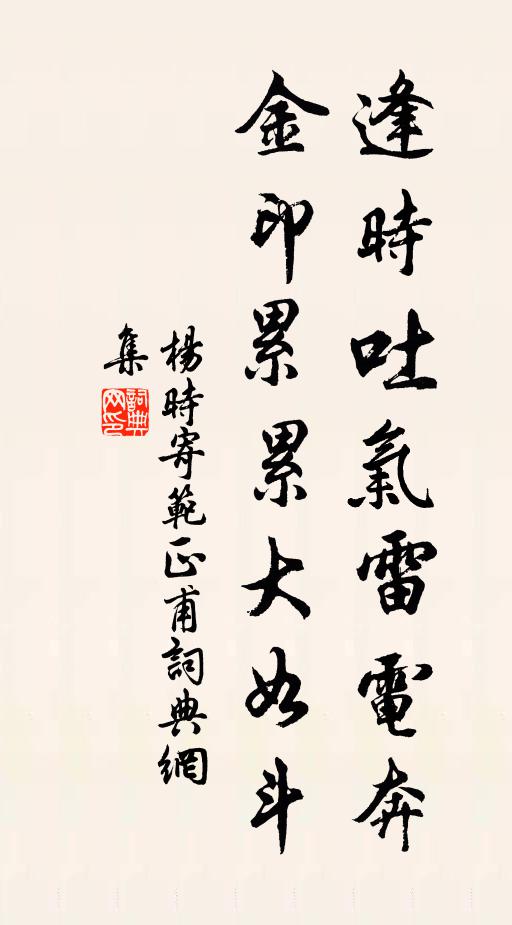 逢時吐氣雷電奔
金印累累大如斗
楊時寄範正甫詞典網
集
詞典
网印